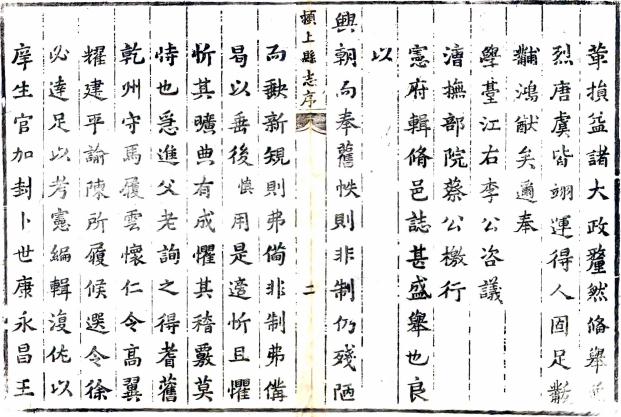 革損益諸大政釐然脩舉
烈唐虞皆翊運得人固足黻
黼鴻猷矣適奉
學臺江右李公咨議
漕撫部院蔡公檄行
憲府輯脩邑誌甚盛舉也良
以
興朝而奉舊帙則非制仍殘陋
潁上縣志序
二
而缺新規則弗備非制弗備
曷以垂後慎用是遑忻且懼
忻其曠典有成懼其稽覈莫
恃也急進父老詢之得耆舊
乾州守馬履雲懷仁令高翼
耀建平諭陳所履候選令徐
必達足以考憲編輯復佐以
庠生官加封卜世康永昌王